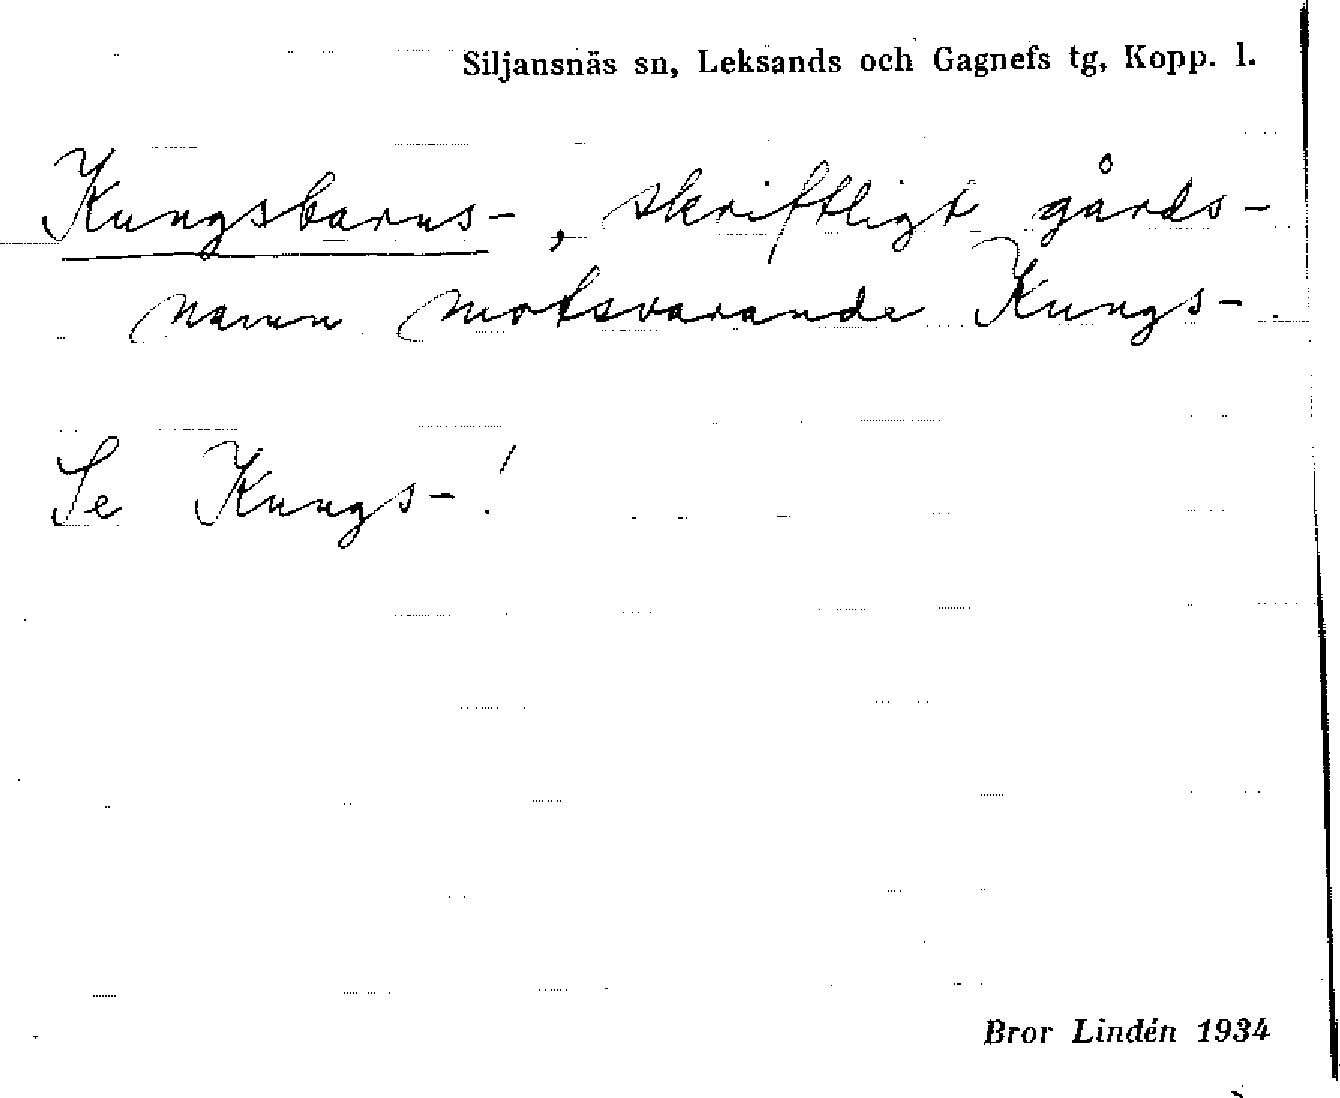 Siljansnäs sn, Leksands och Gagnefs tg, Kopp. l.
Kungsbarns-, skriftligt gårds-
namn motsvarande Kungs-.
Se Kungs-!
Bror Lindén 1934